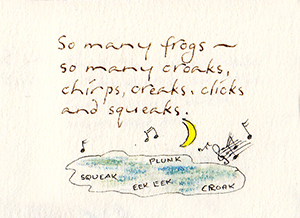 So many frogs ~
so many croaks,
chirps, creaks, clicks
and squeaks.
PLUNK
SQUEAK
EEK EEK
CROAK